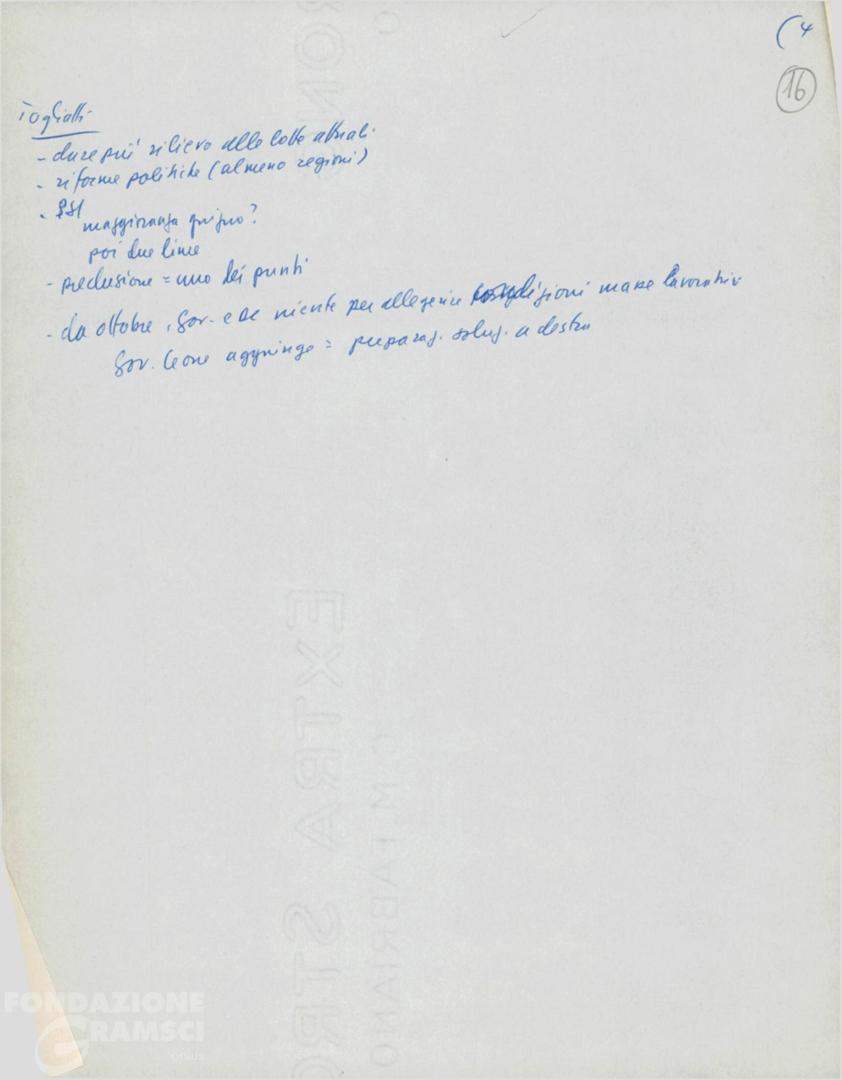 (4
16
Togliatti
- dare più rilievo alle lotte attuali
- riforme politiche (almeno regioni)
- PSI
maggioranza
poi due linee
- preclusione = uno dei punti
- da ottobre, gov. e DC niente per alleggerire condizioni masse lavoratrici
gov. Leone aggiunge = preparaz. soluz. a destra
EXTRA STRO
C.M. FABRIANO
FONDAZIONE
GRAMSCI
onlus